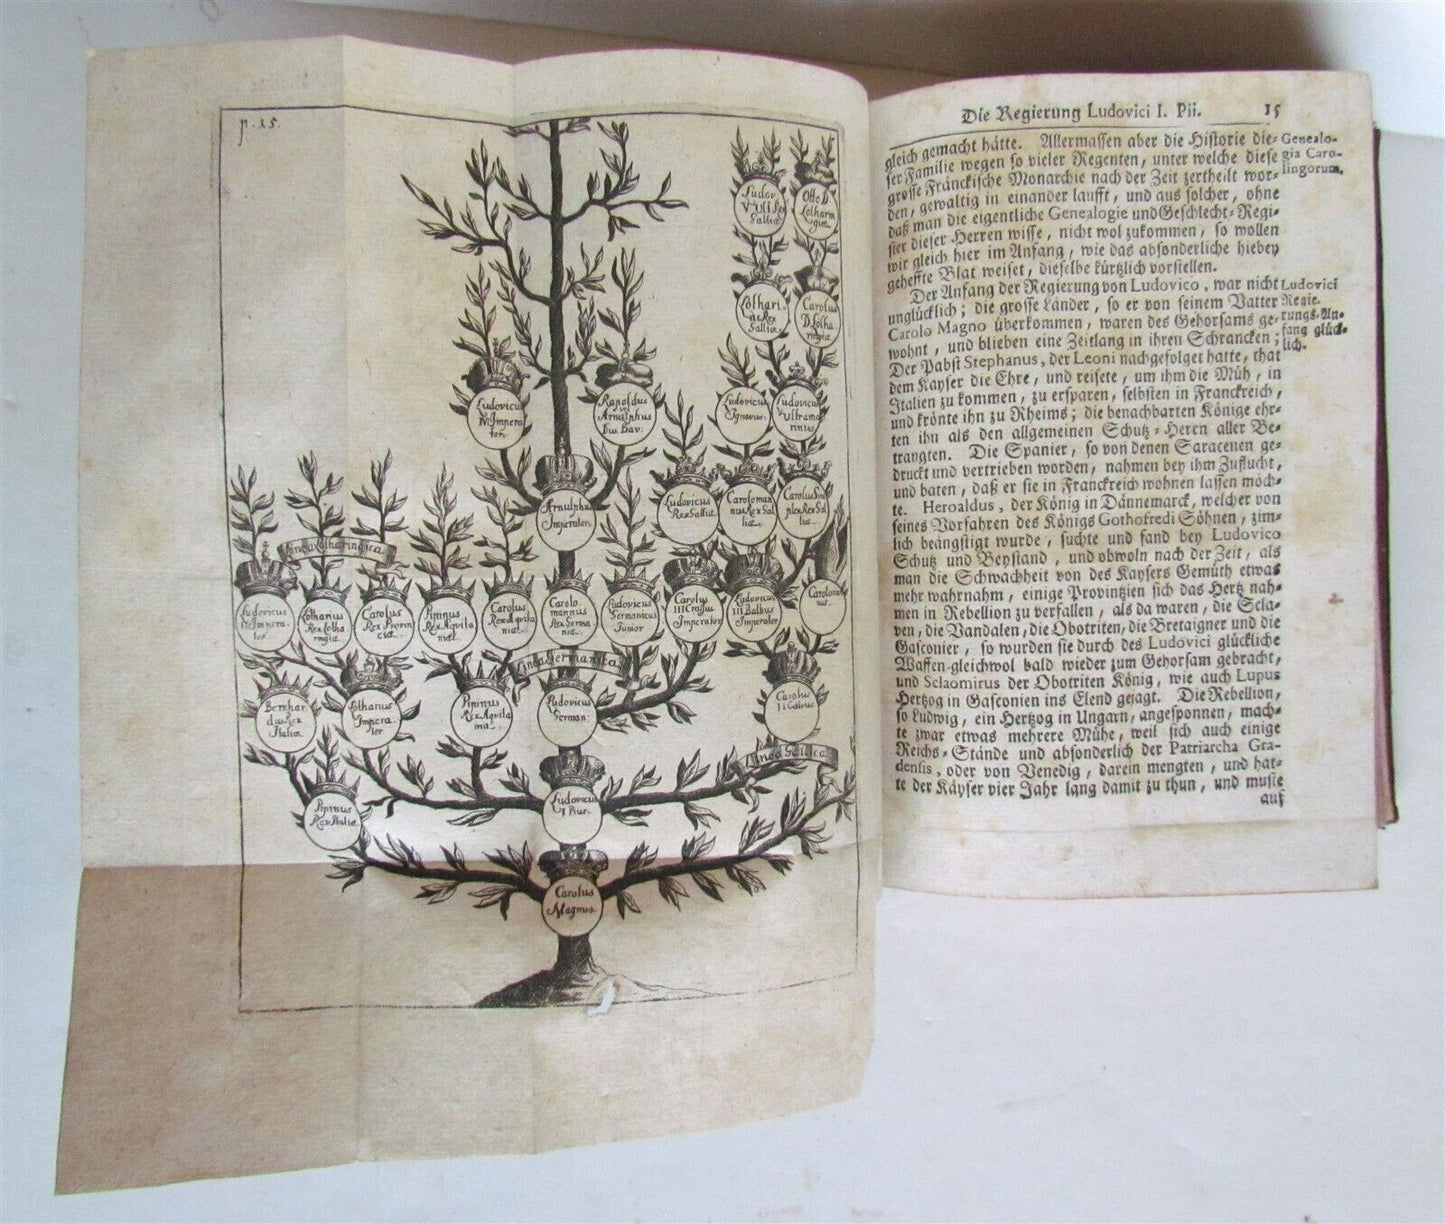 p. 15.
Ludov
VUll Rex
Galliæ
Otto D
Lotharin
giæ
Lothari-
us Rex
Galliæ
Carolus
D Lotha
ringiæ
Ludovicus
IV Impera
tor.
Rapoldus
vel
Arnulphus
Dux Bav:
Ludovicus
Ignavus.
Ludovicus
Ultrama
rinus
Arnulphus
Imperator.
Ludovicus
Rex Galliæ
Caroloman
nus Rex Gal
liæ
Carolus Sim
plex Rex Gal
liæ
Linea Lotharingica
Ludovicus
II Impera-
tor
Lotharius
Rex Lotha
ringiæ
Carolus
Rex Provin
ciæ
Pipinus
Rex Aquita
niæ
Carolus
Rex Aquita
niæ
Carolo
mannus
Rex Germa
niæ
Ludovicus
Germanicus
Junior
Carolus
III Crassus
Imperator
Ludovicus
III Balbus
Imperator
Caroloman
nus.
Linea Germanica
Bernhar
dus Rex
Italiæ
Lotharius
Impera-
tor
Pipinus
Rex Aquita
niæ
Ludovicus
German:
Carolus
II Calvus
Linea Gallica
Pipinus
Rex Italiæ
Ludovicus
I Pius.
Carolus
Magnus
Die Regierung Ludovici I. Pii. 15
gleich gemacht hätte. Allermassen aber die Historie die-
ser Familie wegen so vieler Regenten, unter welche diese
grosse Fränckische Monarchie nach der Zeit zertheilt wor-
den, gewaltig in einander laufft, und aus solcher, ohne
daß man die eigentliche Genealogie und Geschlecht-Regi-
ster dieser Herren wisse, nicht wol zukommen, so wollen
wir gleich hier im Anfang, wie das absonderliche hiebey
geheffte Blat weiset, dieselbe kürtzlich vorstellen.
Genealo-
gia Caro-
lingorum.
Der Anfang der Regierung von Ludovico, war nicht
unglücklich; die grosse Länder, so er von seinem Vatter
Carolo Magno überkommen, waren des Gehorsams ge-
wohnt, und blieben eine Zeitlang in ihren Schrancken;
Der Pabst Stephanus, der Leoni nachgefolget hatte, that
dem Kayser die Ehre, und reisete, um ihm die Müh, in
Italien zu kommen, zu ersparen, selbsten in Franckreich,
und krönte ihn zu Rheims; die benachbarten Könige ehr-
ten ihn als den allgemeinen Schutz-Herrn aller Be-
trangten. Die Spanier, so von denen Saracenen ge-
druckt und vertrieben worden, nahmen bey ihm Zuflucht,
und baten, daß er sie in Franckreich wohnen lassen möch-
te. Heroaldus, der König in Dännemarck, welcher von
seines Vorfahren des Königs Gothofredi Söhnen, zim-
lich beängstigt wurde, suchte und fand bey Ludovico
Schutz und Beystand, und obwoln nach der Zeit, als
man die Schwachheit von des Kaysers Gemüth etwas
mehr wahrnahm, einige Provintzien sich das Hertz nah-
men in Rebellion zu verfallen, als da waren, die Scla-
ven, die Vandalen, die Obotriten, die Bretaigner und die
Gasconier, so wurden sie durch des Ludovici glückliche
Waffen gleichwol bald wieder zum Gehorsam gebracht,
und Sclaomirus der Obotriten König, wie auch Lupus
Hertzog in Gasconien ins Elend gejagt. Die Rebellion,
so Ludwig, ein Hertzog in Ungarn, angesponnen, mach-
te zwar etwas mehrere Mühe, weil sich auch einige
Reichs-Stände und absonderlich der Patriarcha Gra-
densis, oder von Venedig, darein mengten, und hat-
te der Käyser vier Jahr lang damit zu thun, und muste
auf
Ludovici
Regie-
rungs-An-
fang glück-
lich.